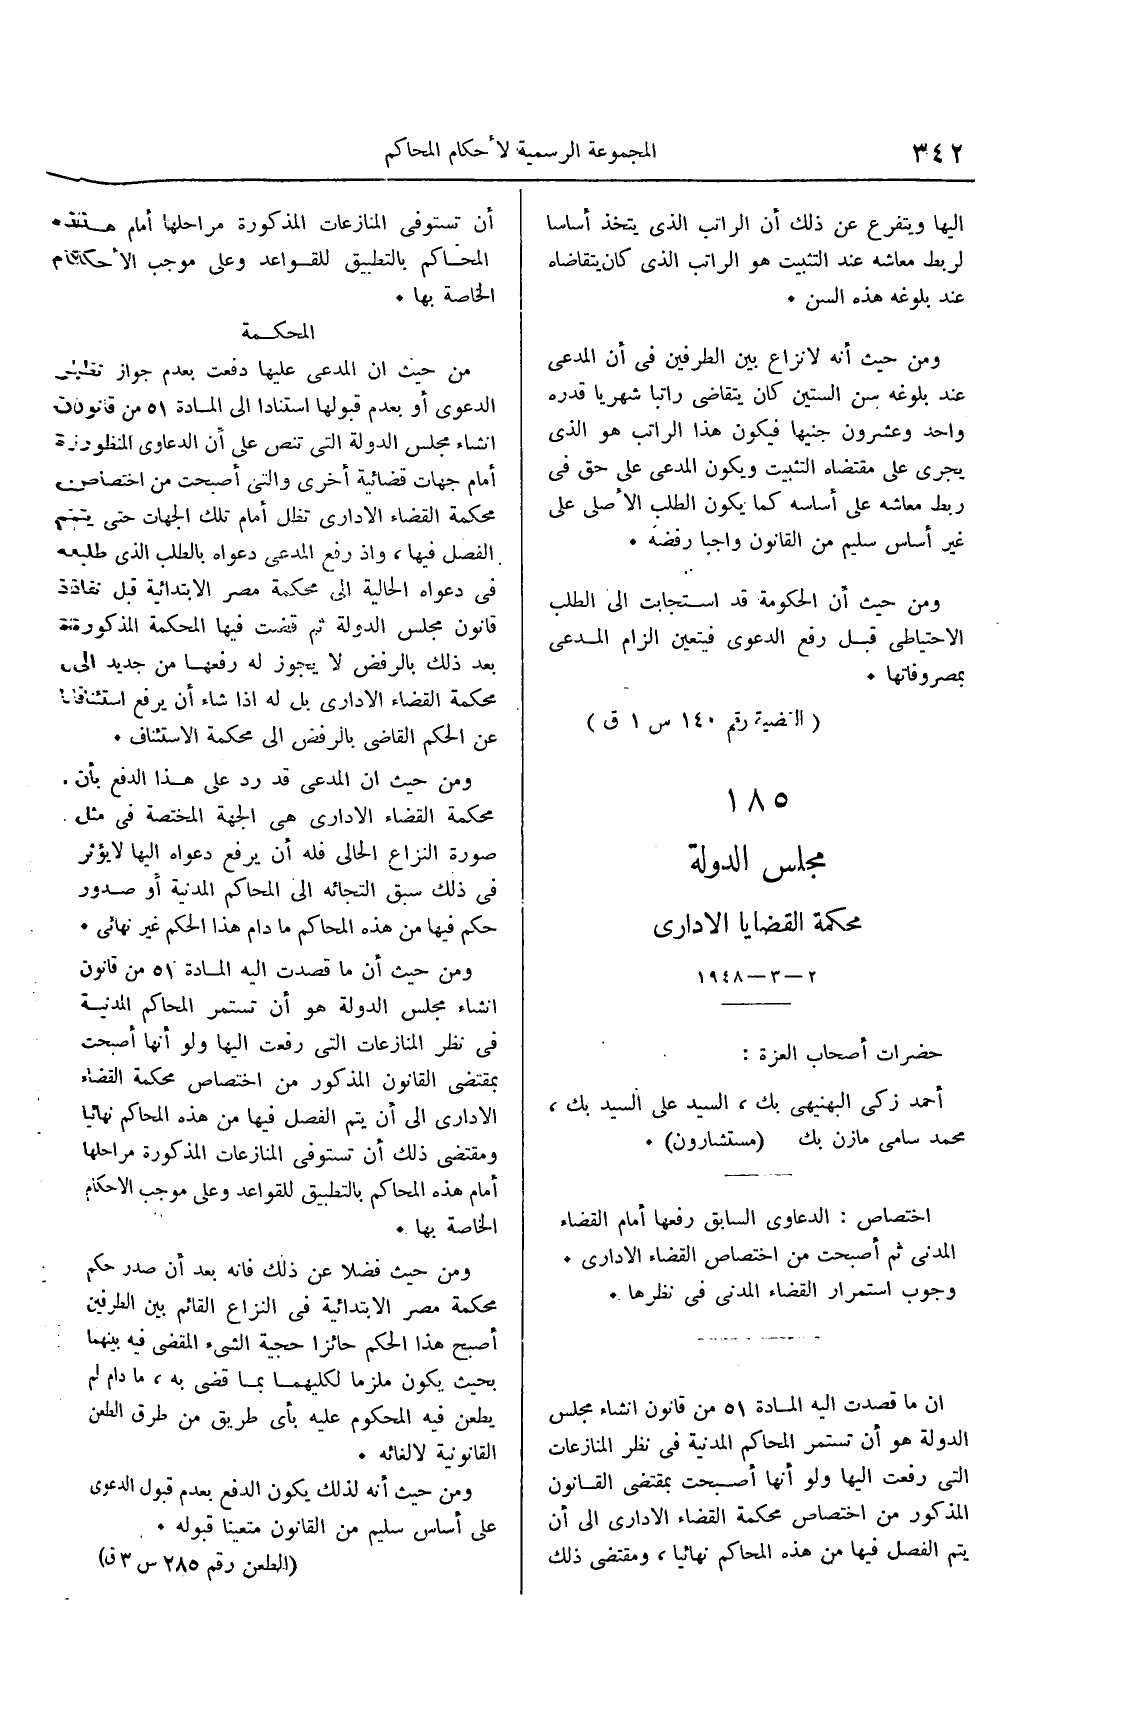 ٣٤٢
المجموعة الرسمية لأحكام المحاكم
اليها ويتفرع عن ذلك أن الراتب الذى يتخذ أساسا
لربط معاشه عند التثبيت هو الراتب الذى كان يتقاضاه
عند بلوغه هذه السن ٠
ومن حيث أنه لانزاع بين الطرفين فى أن المدعى
عند بلوغه سن الستين كان يتقاضى راتبا شهريا قدره
واحد وعشرون جنيها فيكون هذا الراتب هو الذى
يجرى على مقتضاه التثبيت ويكون المدعى على حق فى
ربط معاشه على أساسه كما يكون الطلب الأصلى على
غير أساس سليم من القانون واجبا رفضه ٠
ومن حيث أن الحكومة قد استجابت الى الطلب
الاحتياطى قبل رفع الدعوى فيتعين الزام المدعى
بمصروفاتها ٠
( القضية رقم ١٤٠ س ١ ق )
١٨٥
مجلس الدولة
محكمة القضايا الادارى
٢ – ٣ – ١٩٤٨
حضرات أصحاب العزة :
أحمد زكى البهنيهى بك ، السيد على السيد بك ،
محمد سامى مازن بك (مستشارون) ٠
اختصاص : الدعاوى السابق رفعها أمام القضاء
المدنى ثم أصبحت من اختصاص القضاء الادارى ٠
وجوب استمرار القضاء المدنى فى نظرها ٠
ان ما قصدت اليه المادة ٥١ من قانون انشاء مجلس
الدولة هو أن تستمر المحاكم المدنية فى نظر المنازعات
التى رفعت اليها ولو أنها أصبحت بمقتضى القانون
المذكور من اختصاص محكمة القضاء الادارى الى أن
يتم الفصل فيها من هذه المحاكم نهائيا ، ومقتضى ذلك
أن تستوفى المنازعات المذكورة مراحلها أمام هذه
المحاكم بالتطبيق للقواعد وعلى موجب الأحكام
الخاصة بها ٠
المحكمة
من حيث ان المدعى عليها دفعت بعدم جواز نظر
الدعوى أو بعدم قبولها استنادا الى المادة ٥١ من قانون
انشاء مجلس الدولة التى تنص على أن الدعاوى المنظورة
أمام جهات قضائية أخرى والتى أصبحت من اختصاص
محكمة القضاء الادارى تظل أمام تلك الجهات حتى يتم
الفصل فيها ، واذ رفع المدعى دعواه بالطلب الذى طلبه
فى دعواه الحالية الى محكمة مصر الابتدائية قبل نفاذ
قانون مجلس الدولة ثم قضت فيها المحكمة المذكورة
بعد ذلك بالرفض لا يجوز له رفعها من جديد الى
محكمة القضاء الادارى بل له اذا شاء أن يرفع استئنافا
عن الحكم القاضى بالرفض الى محكمة الاستئناف ٠
ومن حيث ان المدعى قد رد على هذا الدفع بأن
محكمة القضاء الادارى هى الجهة المختصة فى مثل
صورة النزاع الحالى فله أن يرفع دعواه اليها لايؤثر
فى ذلك سبق التجائه الى المحاكم المدنية أو صدور
حكم فيها من هذه المحاكم ما دام هذا الحكم غير نهائى ٠
ومن حيث أن ما قصدت اليه المادة ٥١ من قانون
انشاء مجلس الدولة هو أن تستمر المحاكم المدنية
فى نظر المنازعات التى رفعت اليها ولو أنها أصبحت
بمقتضى القانون المذكور من اختصاص محكمة القضاء
الادارى الى أن يتم الفصل فيها من هذه المحاكم نهائيا
ومقتضى ذلك أن تستوفى المنازعات المذكورة مراحلها
أمام هذه المحاكم بالتطبيق للقواعد وعلى موجب الاحكام
الخاصة بها ٠
ومن حيث فضلا عن ذلك فانه بعد أن صدر حكم
محكمة مصر الابتدائية فى النزاع القائم بين الطرفين
أصبح هذا الحكم حائزا حجية الشىء المقضى فيه بينهما
بحيث يكون ملزما لكليهما بما قضى به ، ما دام لم
يطعن فيه المحكوم عليه بأى طريق من طرق الطعن
القانونية لالغائه ٠
ومن حيث أنه لذلك يكون الدفع بعدم قبول الدعوى
على أساس سليم من القانون متعينا قبوله ٠
(الطعن رقم ٢٨٥ س ٣ ق)